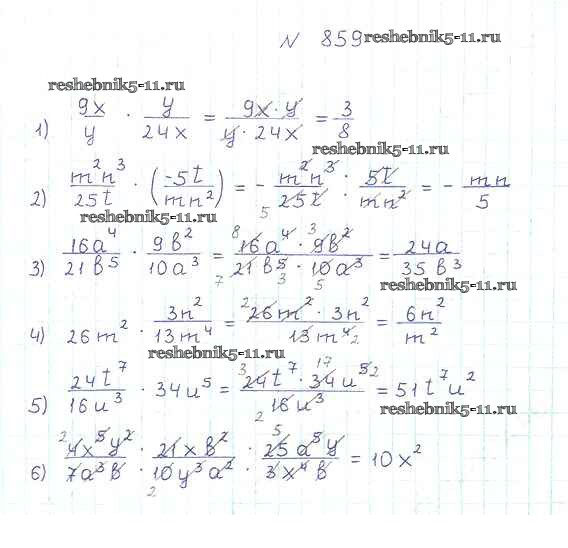 N 859 reshebnik5-11.ru
reshebnik5-11.ru
1) 9x/y · y/24x = 9x·y/y·24x = 3/8
reshebnik5-11.ru
2) m²n³/25t · (-5t/mn²) = - m²n³/25t 5 · 5t/mn² = - mn/5
reshebnik5-11.ru
3) 16a⁴/21b⁵ · 9b²/10a³ = 8 16a⁴ · 3 9b²/7 21b⁵ 3 · 10a³ 5 = 24a/35b³
reshebnik5-11.ru
4) 26m² · 3n²/13m⁴ = 2 26m² · 3n²/13m⁴ 2 = 6n²/m²
reshebnik5-11.ru
5) 24t⁷/16u³ · 34u⁵ = 3 24t⁷ · 17 34u⁵ 2/2 16u³ = 51t⁷u²
reshebnik5-11.ru
6) 2 4x⁵y²/7a³b · 21xb²/10y³a² 2 · 5 25a⁵y/3x⁴b = 10x²